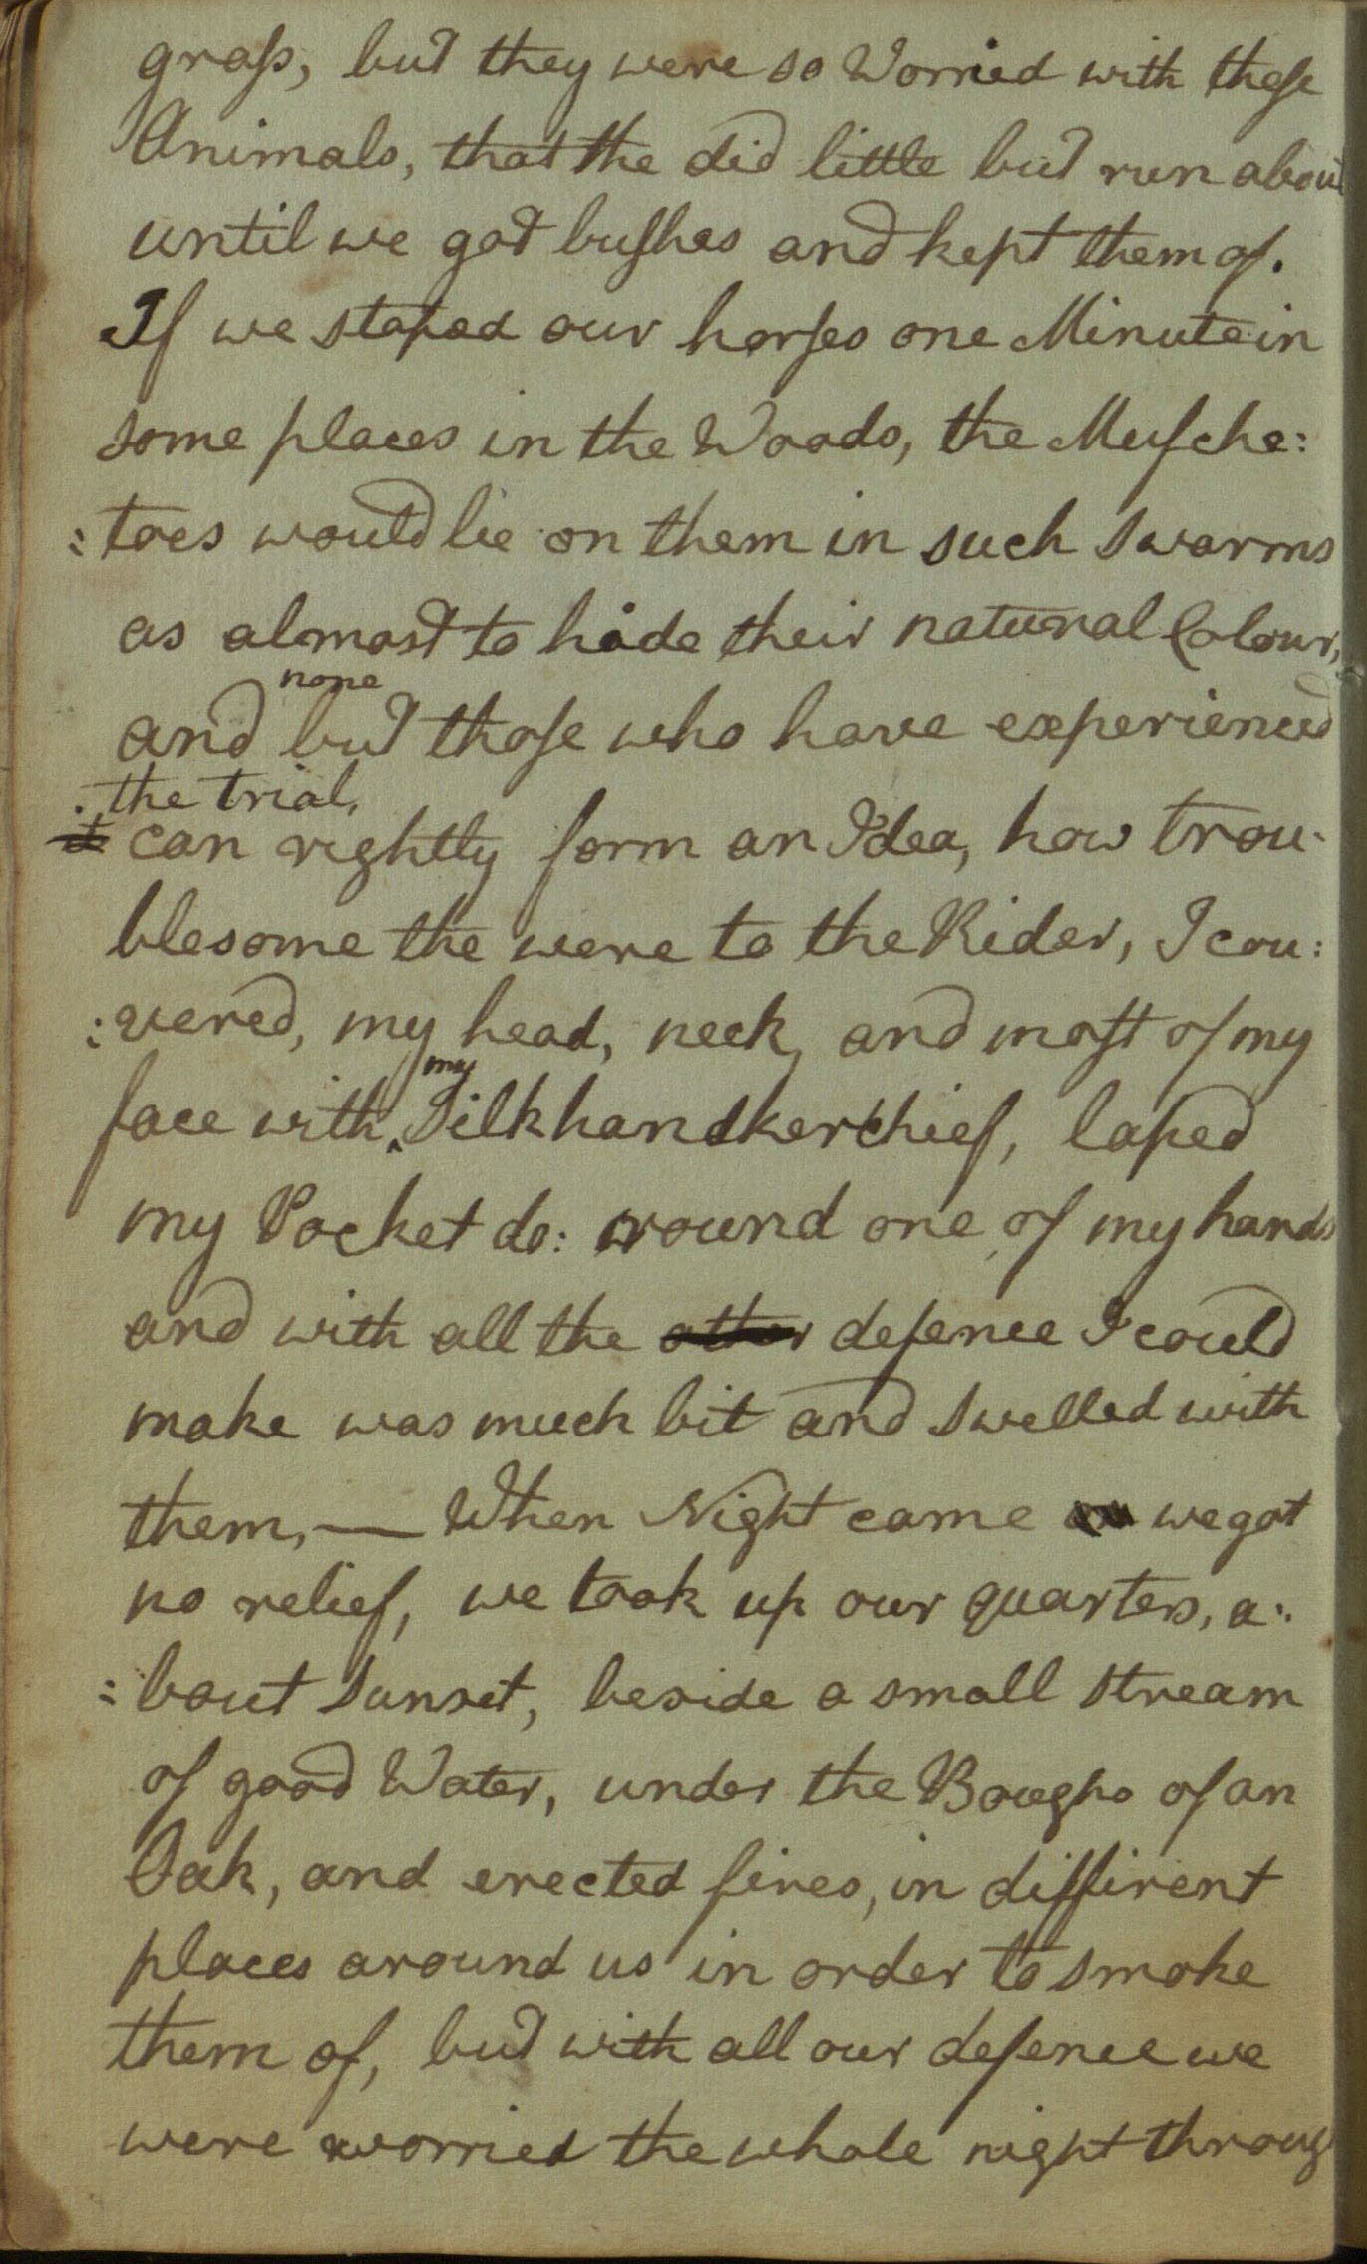 graſs, but they were so Worried with theſe
Animals, that the did little but run about
until we got buſhes and kept them of.
If we stoped our horſes one Minute in
some places in the Woods, the Muſche:
:toes would lie on them in such Swarms
as almost to hide their natural Colour,
none
and but thoſe who have experienced
the trial,
it can rightly form an Idea, how trou-
blesome the were to the Rider, I cou:
:vered, my head, neck, and moſt of my
my
face with Silk handkerchief, laped
my Pocket do: round one of my hands
and with all the other defence I could
make was much bit and Swelled with
them, — When Night came on we got
no relief, we took up our quarters, a:
:bout Sunset, beside a small stream
of good Water, under the Boughs of an
Oak, and erected fires, in diffirent
places around us in order to smoke
them of, but with all our defence we
were worried the whole night throug